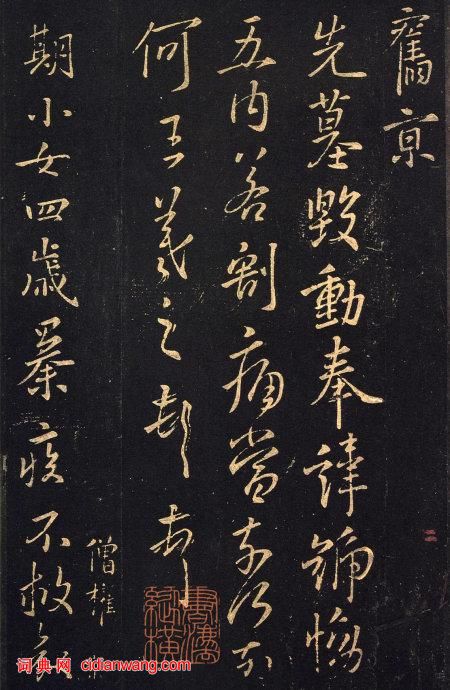 舊京
先墓毀動奉諱號慟
五內若割痛當奈何奈
何王羲之頓首
僧權
期小女四歲暴疾不救哀
二
词典网 cidianwang.com